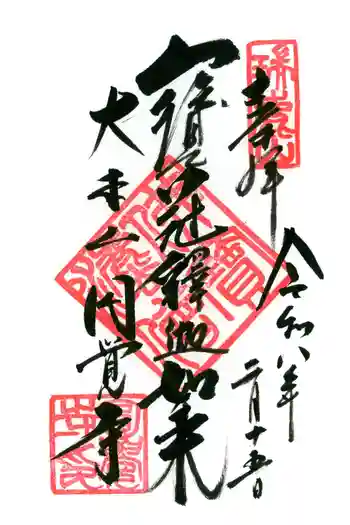 奉拝
令和八年
二月十五日
寶冠釋迦如来
大本山円覚寺